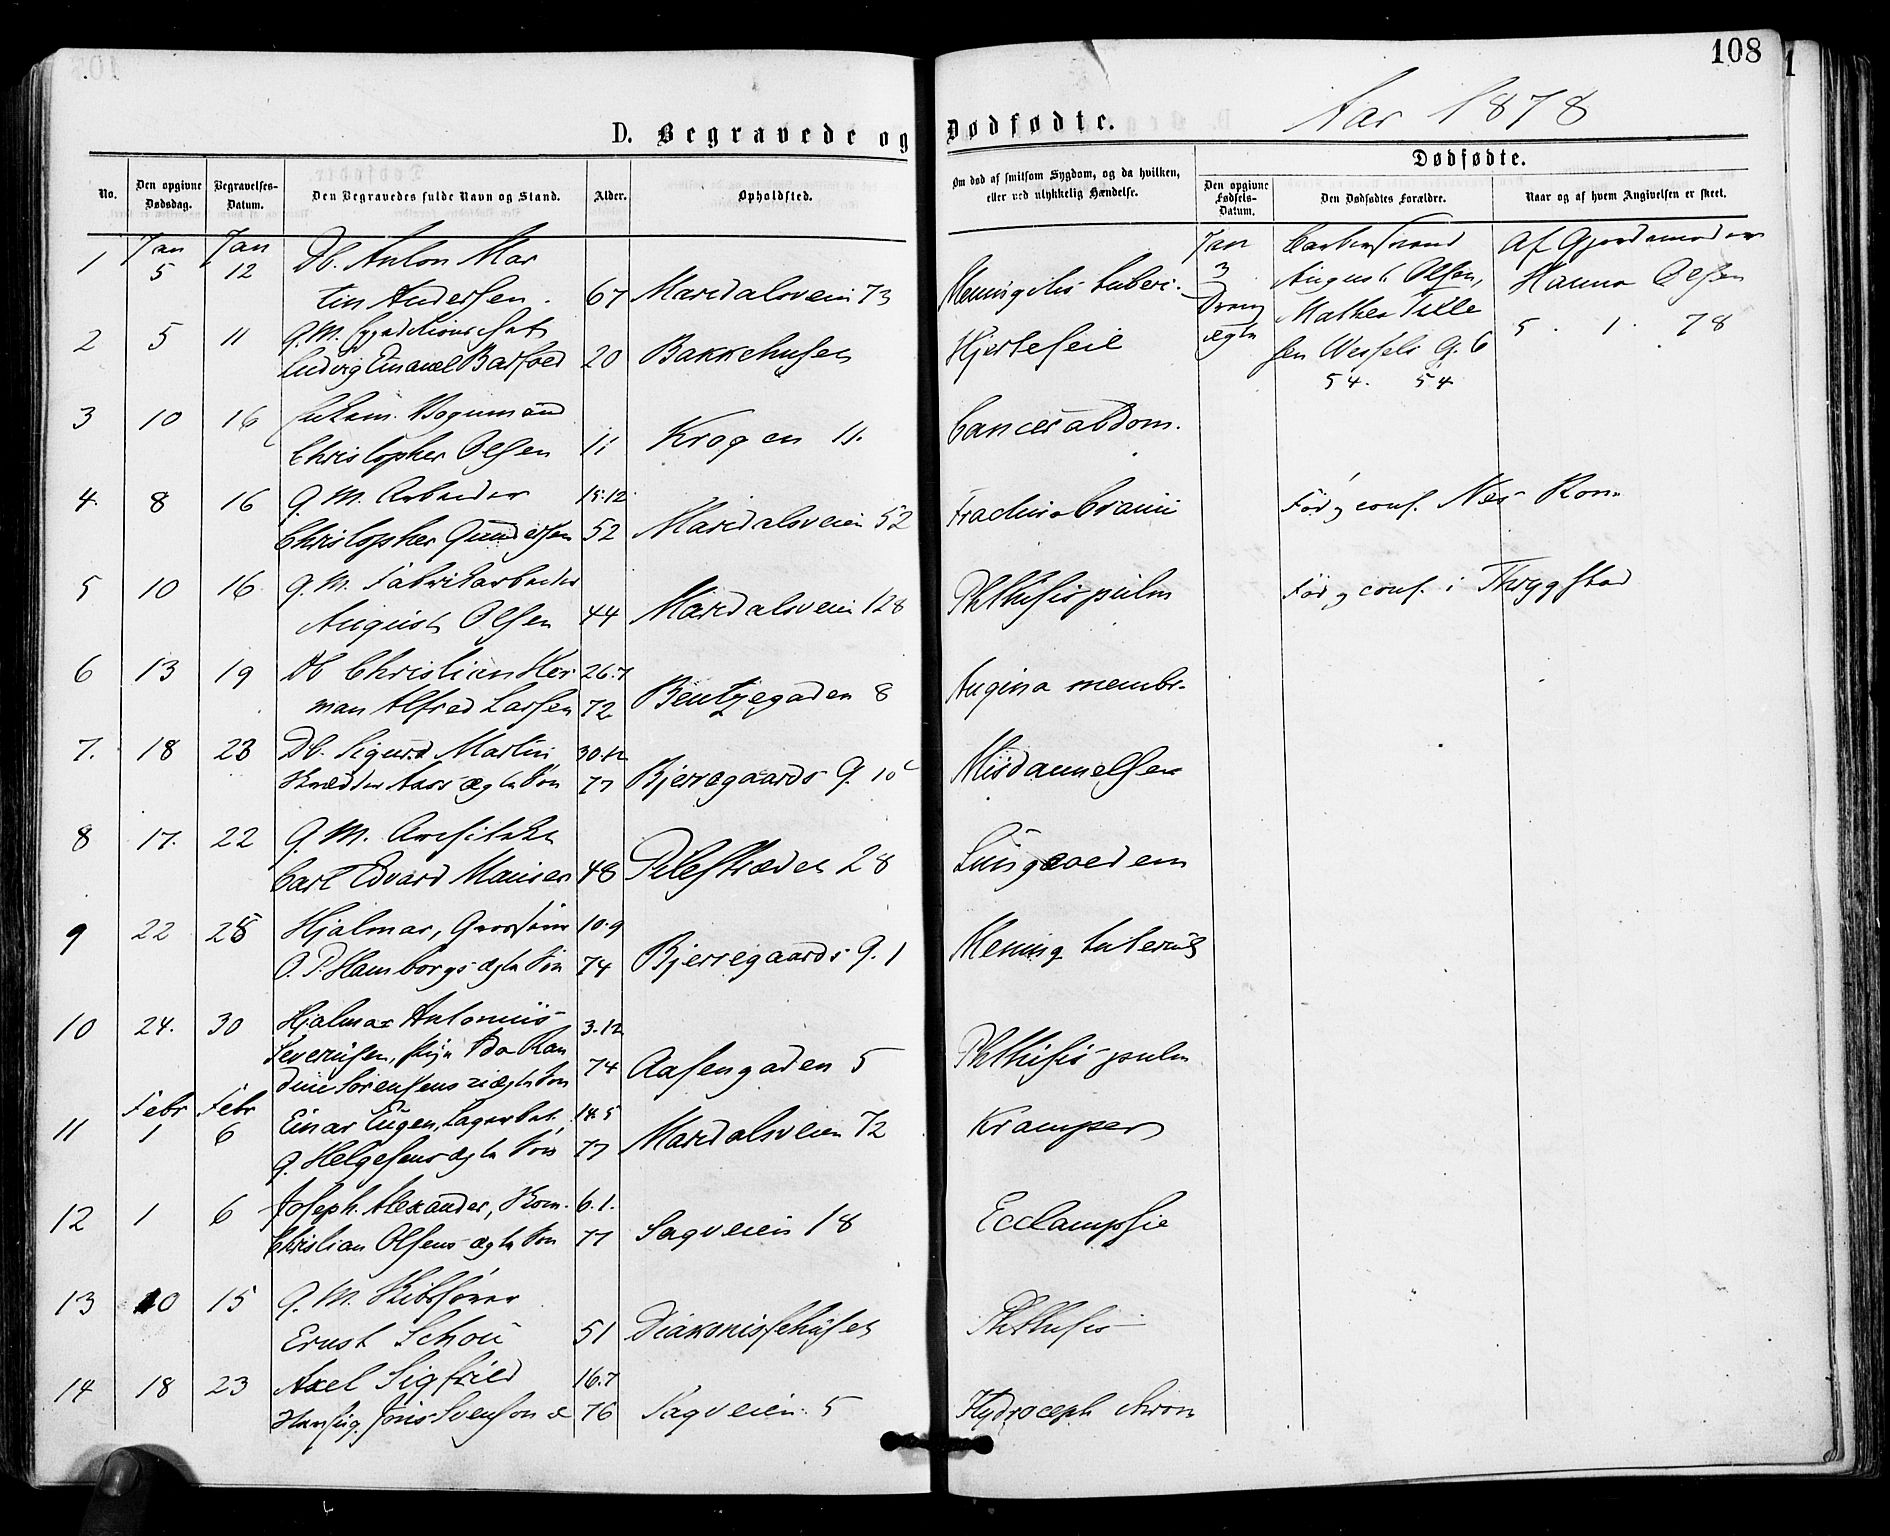 108
Aar 1878
D. Begravede og Dødfødte.
No.
Den opgivne Dødsdag.
Begravelses-Datum.
Den Begravedes fulde Navn og Stand.
Alder.
Opholdsted.
Om død af smitsom Sygdom, og da hvilken, eller ved ulykkelig Hændelse.
Dødfødte.
Den opgivne Fødsels-Datum.
Den Dødfødtes Forældre.
Naar og af hvem Angivelsen er skeet.
Jan Jan
1 5 12 Db. Anton Mar
tin Andersen. 67 Maridalsvein 73 Meningitis tuberc.
2 5 11 G.M.
Ludvig Emanuel Barfoed 20 Bakkehuset Hjertefeil
3 10 16 Bogumand
Christopher Olsen 11 Krogen 11. Cancer abdom.
4. 8 16 G.M. Arbeider 15.12
Christopher Gundersen 52 Maridalsveien 52 Fractura Cranii
Fød og conf. Nes Rom.
5 10 16 G.M. Fabrikarbeider
August Olsen 44 Maridalsveien 128 Phthisis pulm
Fød og conf. i Thrygstad
6 13 19 Db Christian Her 26.7
man Alfred Larsen 72 Bentzegaden 8 Angina membr.
7. 18 23 Db. Sigurd Martin 30.12
Aass ægte Søn 77 Bjerregaards G. 10 Misdannelsen
8 17. 22 G.M. Arkitekt
Carl Edvard 48 Pilestrædet 28 Lungeoedem
9 22 28 Hjalmar, 10.9
O.P. Hamborgs ægte Søn 74 Bjerregaards G. 1 Mening. tubercul
10 24. 30 Hjalmar Antonius 3.12
Severinsen, Pige Ida Ran
dine Sørensens uægte Søn 74 Aasengaden 5 Phthisis pulm
Febr Febr
11 1 6 Einar Eugen, 18.5
G. Helgesens ægte Søn 77 Maridalsveien 72 Kramper
12 1 6 Joseph Alexander, 6.1.
Christian Olsens ægte Søn 77 Sagveien 18 Ecclampsie
13 10 15 G.M. Skibsfører
Ernst Schou 51 Diakonissehuset Phthisis
14 18 23 Axel Sigfried 16.7
Svenson 76 Sagveien 5 Hydroceph chron
Jan
3
Dreng
ægte
August Olsen,
Mathea Tille
sen Wessels G. 6
54. 54
Af Gjordemoder
Hanna Olsen
5. 1. 78